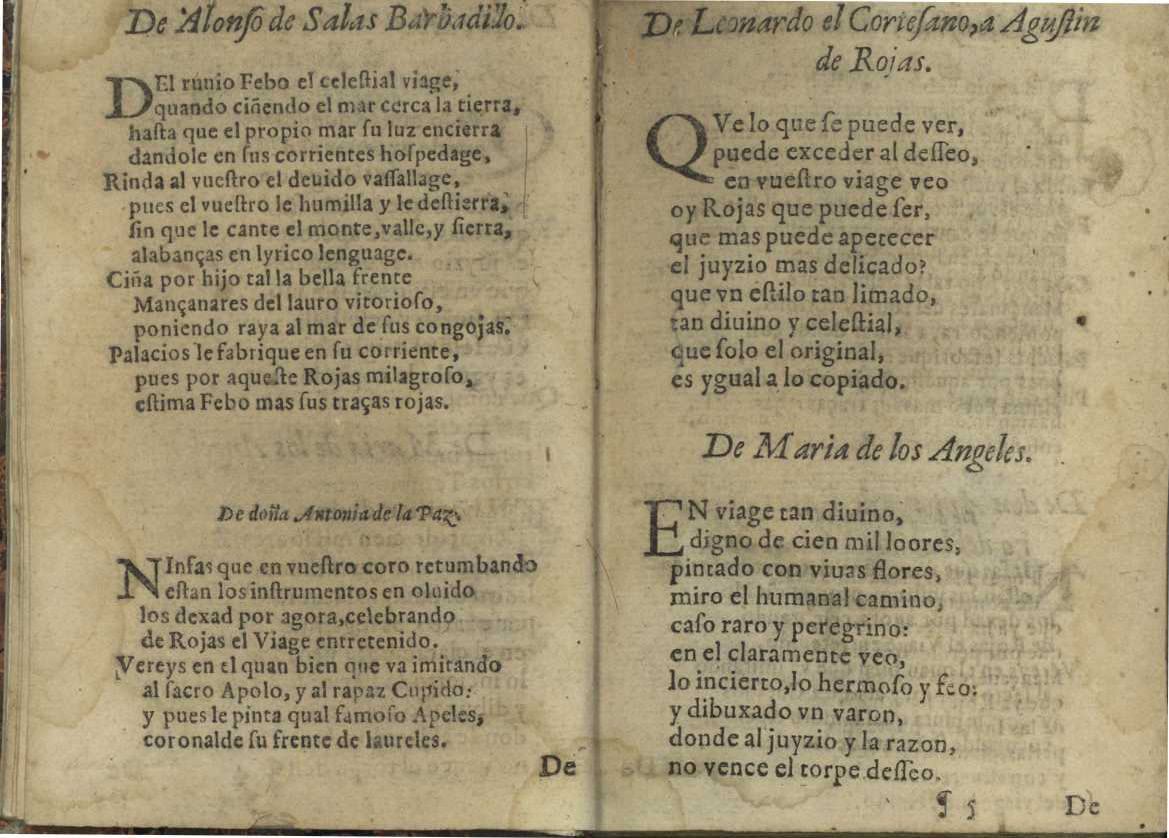 De Alonſo de Salas Barbadillo.
DEl runio Febo el celeſtial viage,
quando ciñendo el mar cerca la tierra,
haſta que el propio mar ſu luz encierra
dandole en ſus corrientes hoſpedage,
Rinda al vueſtro el deuido vaſſallage,
pues el vueſtro le humilla y le deſtierra,
ſin que le cante el monte, valle, y ſierra,
alabanças en lyrico lenguage.
Ciña por hijo tal la bella frente
Mançanares del lauro vitorioſo,
poniendo raya al mar de ſus congojas.
Palacios le fabrique en ſu corriente,
pues por aqueſte Rojas milagroſo,
eſtima Febo mas ſus traças rojas.
De doña Antonia de la Paz.
NInfas que en vueſtro coro retumbando
eſtan los inſtrumentos en oluido
los dexad por agora, celebrando
de Rojas el Viage entretenido.
Vereys en el quan bien que va imitando
al ſacro Apolo, y al rapaz Cupido:
y pues le pinta qual famoſo Apeles,
coronalde ſu frente de laureles.
De
De Leonardo el Corteſano, a Aguſtin
de Rojas.
QVe lo que ſe puede ver,
puede exceder al deſſeo,
en vueſtro viage veo
oy Rojas que puede ſer,
que mas puede apetecer
el juyzio mas delicado?
que vn eſtilo tan limado,
tan diuino y celeſtial,
que ſolo el original,
es ygual a lo copiado.
De Maria de los Angeles.
EN viage tan diuino,
digno de cien mil loores,
pintado con viuas flores,
miro el humanal camino,
caſo raro y peregrino:
en el claramente veo,
lo incierto, lo hermoſo y feo:
y dibuxado vn varon,
donde al juyzio y la razon,
no vence el torpe deſſeo.
¶ 5 De